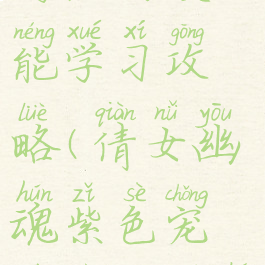 néng xué xí gōng
能学习攻
lüè qiàn nǚ yōu
略(倩女幽
hún zǐ sè chǒng
魂紫色宠